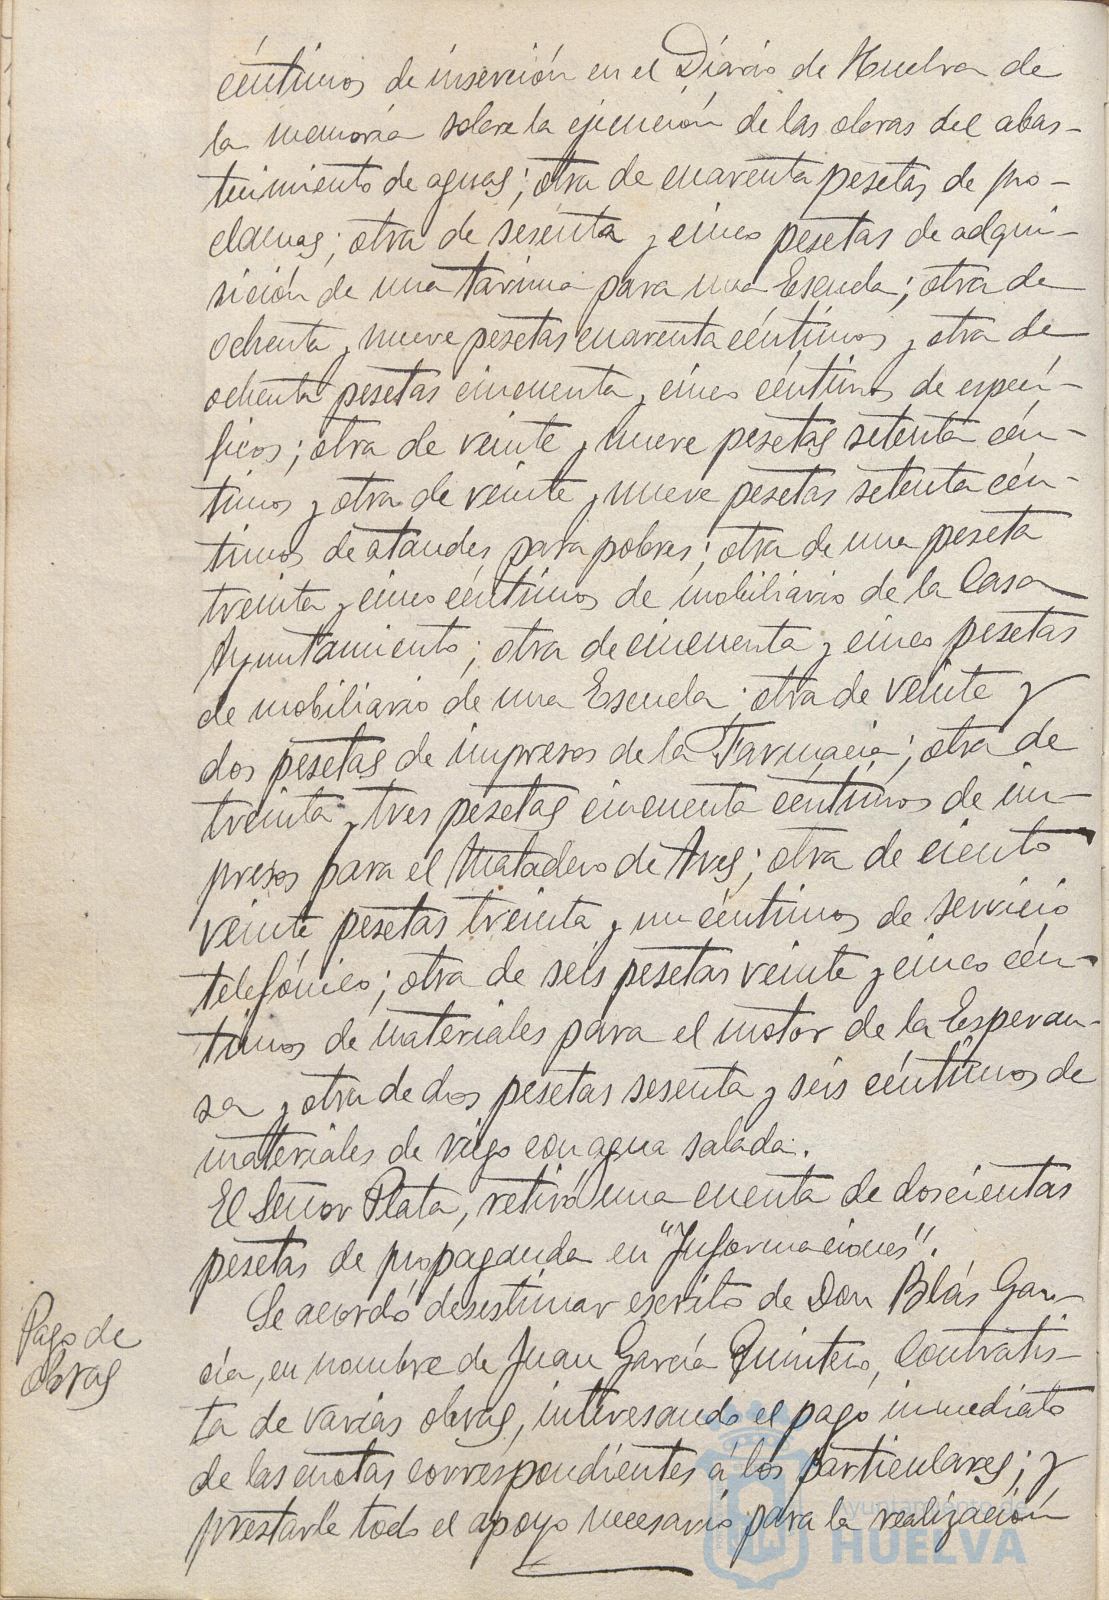 céntimos de inserción en el Diario de Huelva de
la memoria sobre la ejecución de las obras del abas-
tecimiento de aguas; otra de cuarenta pesetas de pro-
clamas; otra de sesenta y cinco pesetas de adqui-
sición de una tarima para una Escuela; otra de
ochenta y nueve pesetas cuarenta céntimos y otra de
ochenta pesetas cincuenta y cinco céntimos de especí-
ficos; otra de veinte y nueve pesetas setenta cén-
timos y otra de veinte y nueve pesetas setenta cén-
timos de ataudes para pobres; otra de una peseta
treinta y cinco céntimos de mobiliario de la Casa
Ayuntamiento; otra de cincuenta y cinco pesetas
de mobiliario de una Escuela; otra de veinte y
dos pesetas de impresos de la Farmacia; otra de
treinta y tres pesetas cincuenta céntimos de im-
presos para el Matadero de Aves; otra de ciento
veinte pesetas treinta y un céntimos de servicio
telefónico; otra de seis pesetas veinte y cinco cén-
timos de materiales para el motor de la Esperan-
sa y otra de dos pesetas sesenta y seis céntimos de
materiales de riego con agua salada.
El Señor Plata, retiró una cuenta de doscientas
pesetas de propaganda en "Informaciones".
Pago de obras
Se acordó desestimar escrito de Don Blás Gar-
cía, en nombre de Juan García Quintero, Contratis-
ta de varias obras, interesando el pago inmediato
de las cuotas correspondientes á los particulares; y
prestarle todo el apoyo necesario para la realización
Ayuntamiento de
HUELVA